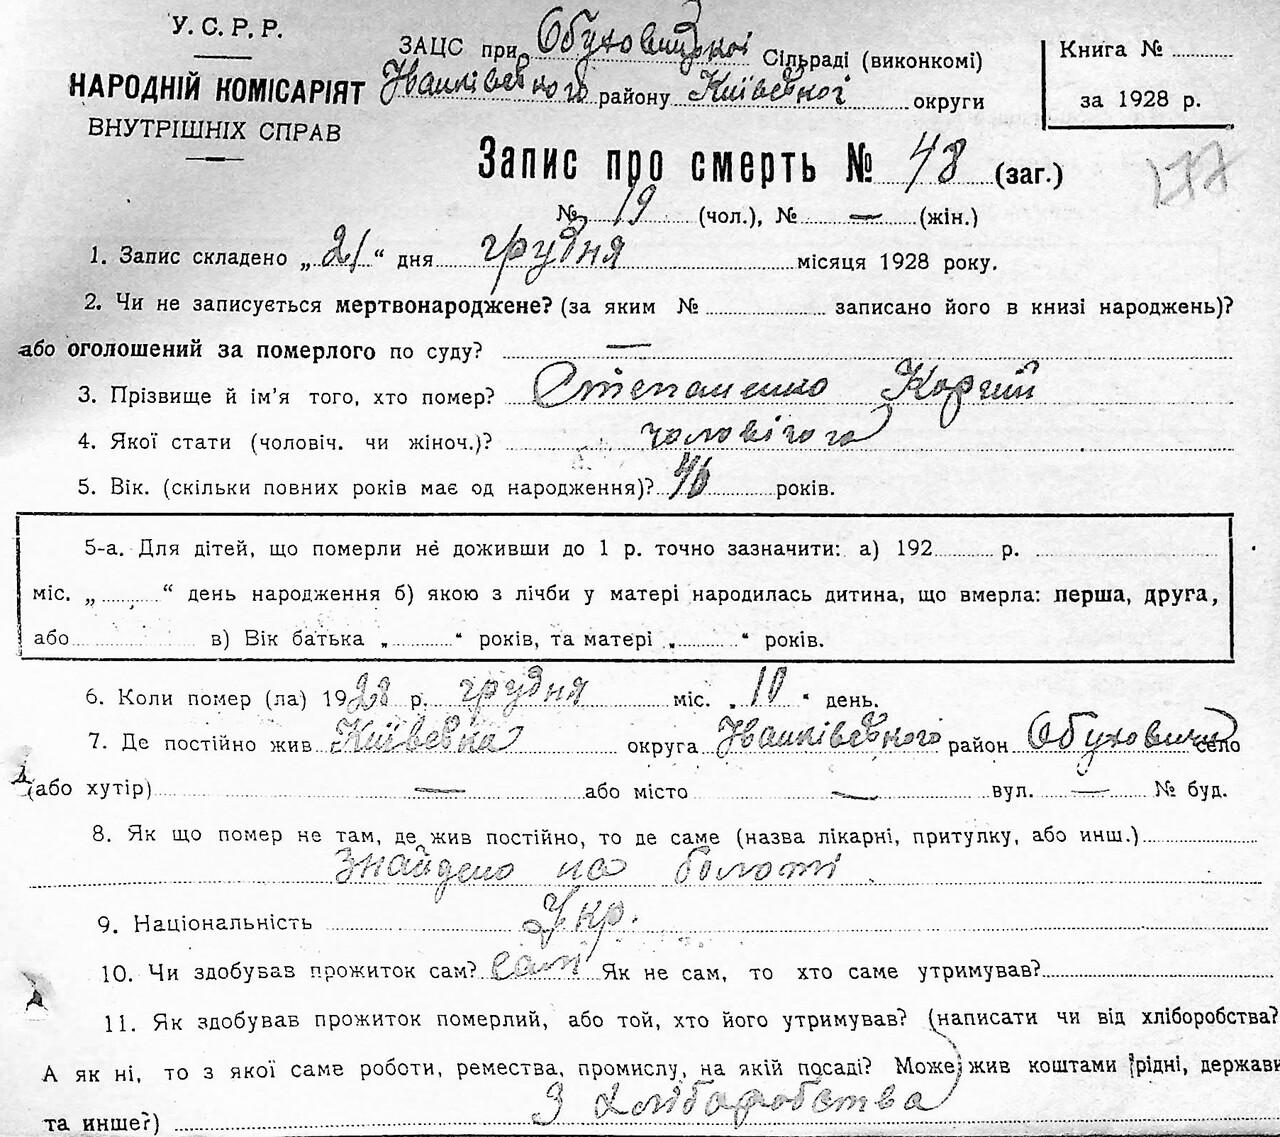 У. С. Р. Р.
НАРОДНІЙ КОМІСАРІЯТ
ВНУТРІШНІХ СПРАВ
ЗАЦС при Обуховицької Сільраді (виконкомі)
Іванківського району Київської округи
Книга №
за 1928 р.
Запис про смерть № 48 (заг.)
177
№ 19 (чол.), № — (жін.)
1. Запис складено „ 21 “ дня грудня місяця 1928 року.
2. Чи не записується мертвонароджене? (за яким № записано його в книзі народжень)?
або оголошений за померлого по суду? —
3. Прізвище й ім'я того, хто помер? Степаненко Корній
4. Якої стати (чоловіч. чи жіноч.)? чоловічого
5. Вік. (скільки повних років має од народження)? 46 років.
5-а. Для дітей, що померли не доживши до 1 р. точно зазначити: а) 192 р.
міс. „ “ день народження б) якою з лічби у матері народилась дитина, що вмерла: перша, друга,
або в) Вік батька „ “ років, та матері „ “ років.
6. Коли помер (ла) 1928 р. грудня міс. „ 10 “ день.
7. Де постійно жив Київська округа Іванківського район Обуховичи село
(або хутір) — або місто — вул. — № буд.
8. Як що помер не там, де жив постійно, то де саме (назва лікарні, притулку, або инш.)
Знайдено на болоті
9. Національність Укр.
10. Чи здобував прожиток сам? сам Як не сам, то хто саме утримував?
11. Як здобував прожиток померлий, або той, хто його утримував? (написати чи від хліборобства?
А як ні, то з якої саме роботи, ремества, промислу, на якій посаді? Може жив коштами рідні, держави
та инше?) З хліборобства